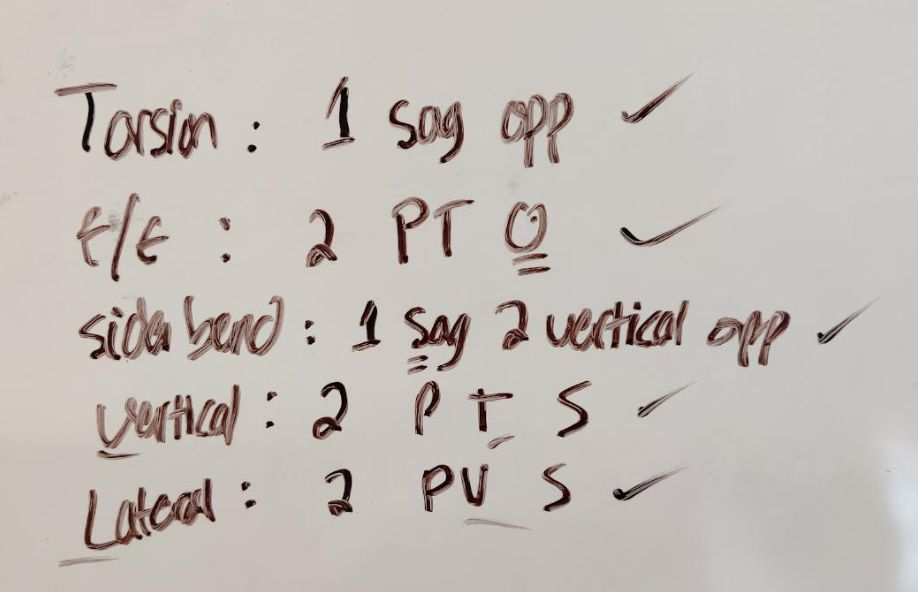 Torsion : 1 Sag opp ✓
f/E : 2 PT O ✓
side bend : 1 Sag 2 vertical opp ✓
vertical : 2 P T S ✓
Lateral : 2 PV S ✓